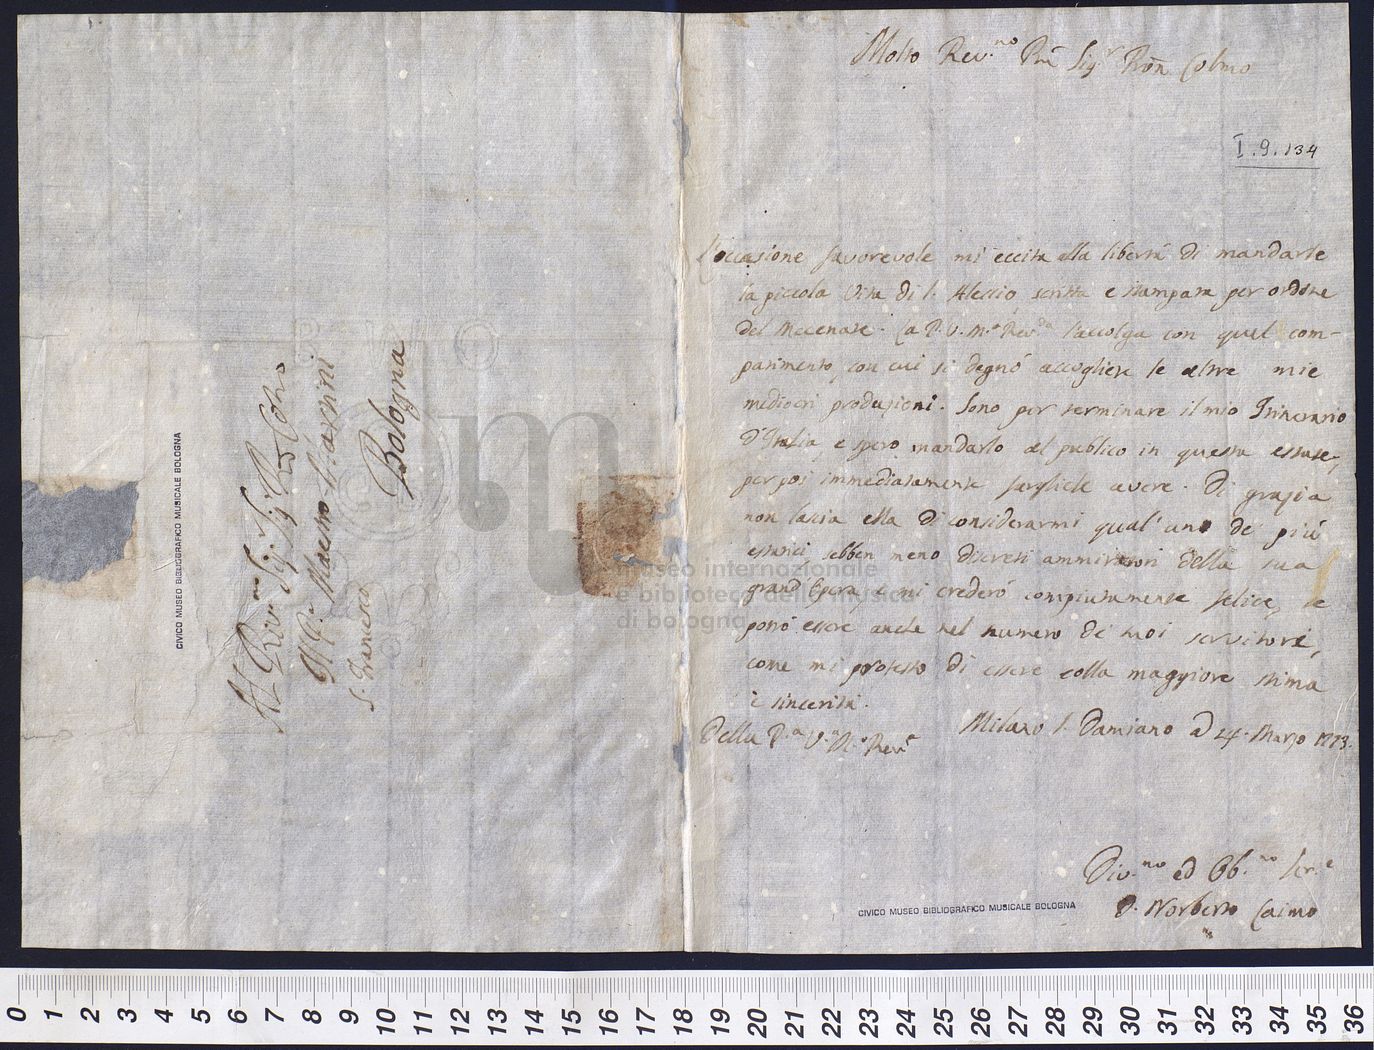 Al Rev.mo Sig.r Sig.r P.ron Col.mo
Il P. Maestro Martini
S. Francesco
Bologna
CIVICO MUSEO BIBLIOGRAFICO MUSICALE BOLOGNA
Molto Rev.no Pre Sig.r Pron. Colmo
I.9.134
L'occasione favorevole mi eccita alla libertà di mandarle
la piccola Vita di S. Alessio, scritta e stampata per ordine
del Mecenate. La P. V. M.o Rev.da l'accolga con quel com-
patimento, con cui si degnò accogliere le altre mie
mediocri produzioni. Sono per terminare il mio Itinerario
d'Italia, e spero mandarlo al publico in questa estate,
per poi immediatamente farglielo avere. Di grazia
non lascia ella di considerarmi qual' uno de' più
estatici sebben meno discreti ammiratori della sua
grand' Opera, e mi crederò compiutamente felice, se
potrò essere anche nel numero de' suoi servitori,
come mi protesto di essere colla maggiore stima
e sincerità.
Della P.a V.a M.o Rev.a
Milano S. Damiano a 24. Marzo 1773.
Div.mo ed Obb.mo Ser.e
D. Norberto Caimo
CIVICO MUSEO BIBLIOGRAFICO MUSICALE BOLOGNA
museo internazionale
e biblioteca della musica
di bologna
0 1 2 3 4 5 6 7 8 9 10 11 12 13 14 15 16 17 18 19 20 21 22 23 24 25 26 27 28 29 30 31 32 33 34 35 36